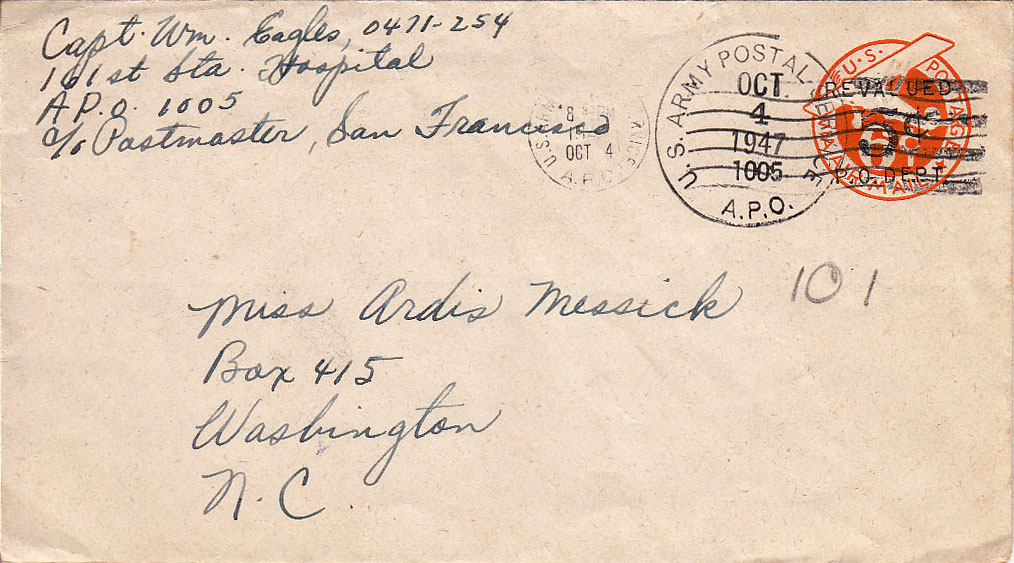 Capt. Wm. Eagles, 0471-254
161st Sta. Hospital
A.P.O. 1005
c/o Postmaster, San Francisco
U.S. ARMY POSTAL SERVICE
OCT
4
1947
1005
A.P.O.
OCT 4
A.P.O.
U.S. POSTAGE
REVALUED
5¢
P.O. DEPT.
VIA AIR MAIL
Miss Ardis Messick
101
Box 415
Washington
N.C.